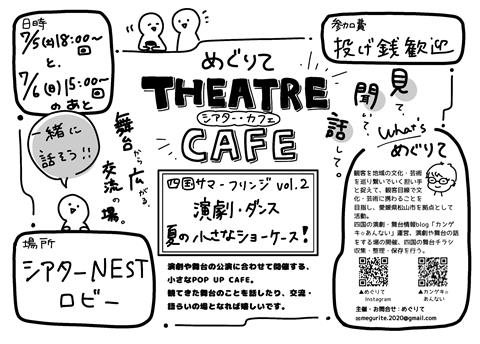 日時
7/5(土)18:00〜回
と、
7/6(日)15:00〜回
のあと
一緒に
話そう!!
舞台から広がる、
交流の場。
場所
シアターNEST
ロビー
めぐりて
THEATRE
シアター・カフェ
CAFE
四国サマーフリンジ vol.2
演劇・ダンス
夏の小さなショーケース!
演劇や舞台の公演に合わせて開催する、
小さなPOP UP CAFE。
観てきた舞台のことを話したり、交流・
語らいの場となれば嬉しいです。
参加費
投げ銭歓迎
見て、
聞いて、
話して。
What's
めぐりて
観客を地域の文化・芸術
を巡り繋いでいく担い手
と捉えて、観客目線で文
化・芸術に携わることを
目指し、愛媛県松山市を拠点として
活動。
四国の演劇・舞台情報blog「カンゲ
キ☆あんない」運営、演劇や舞台の話
をする場の開催、四国の舞台チラシ
収集・整理・保存を行う。
▲めぐりて
Instagram
▲カンゲキ☆
あんない
主催・お問合せ:めぐりて
✉megurite.2020@gmail.com